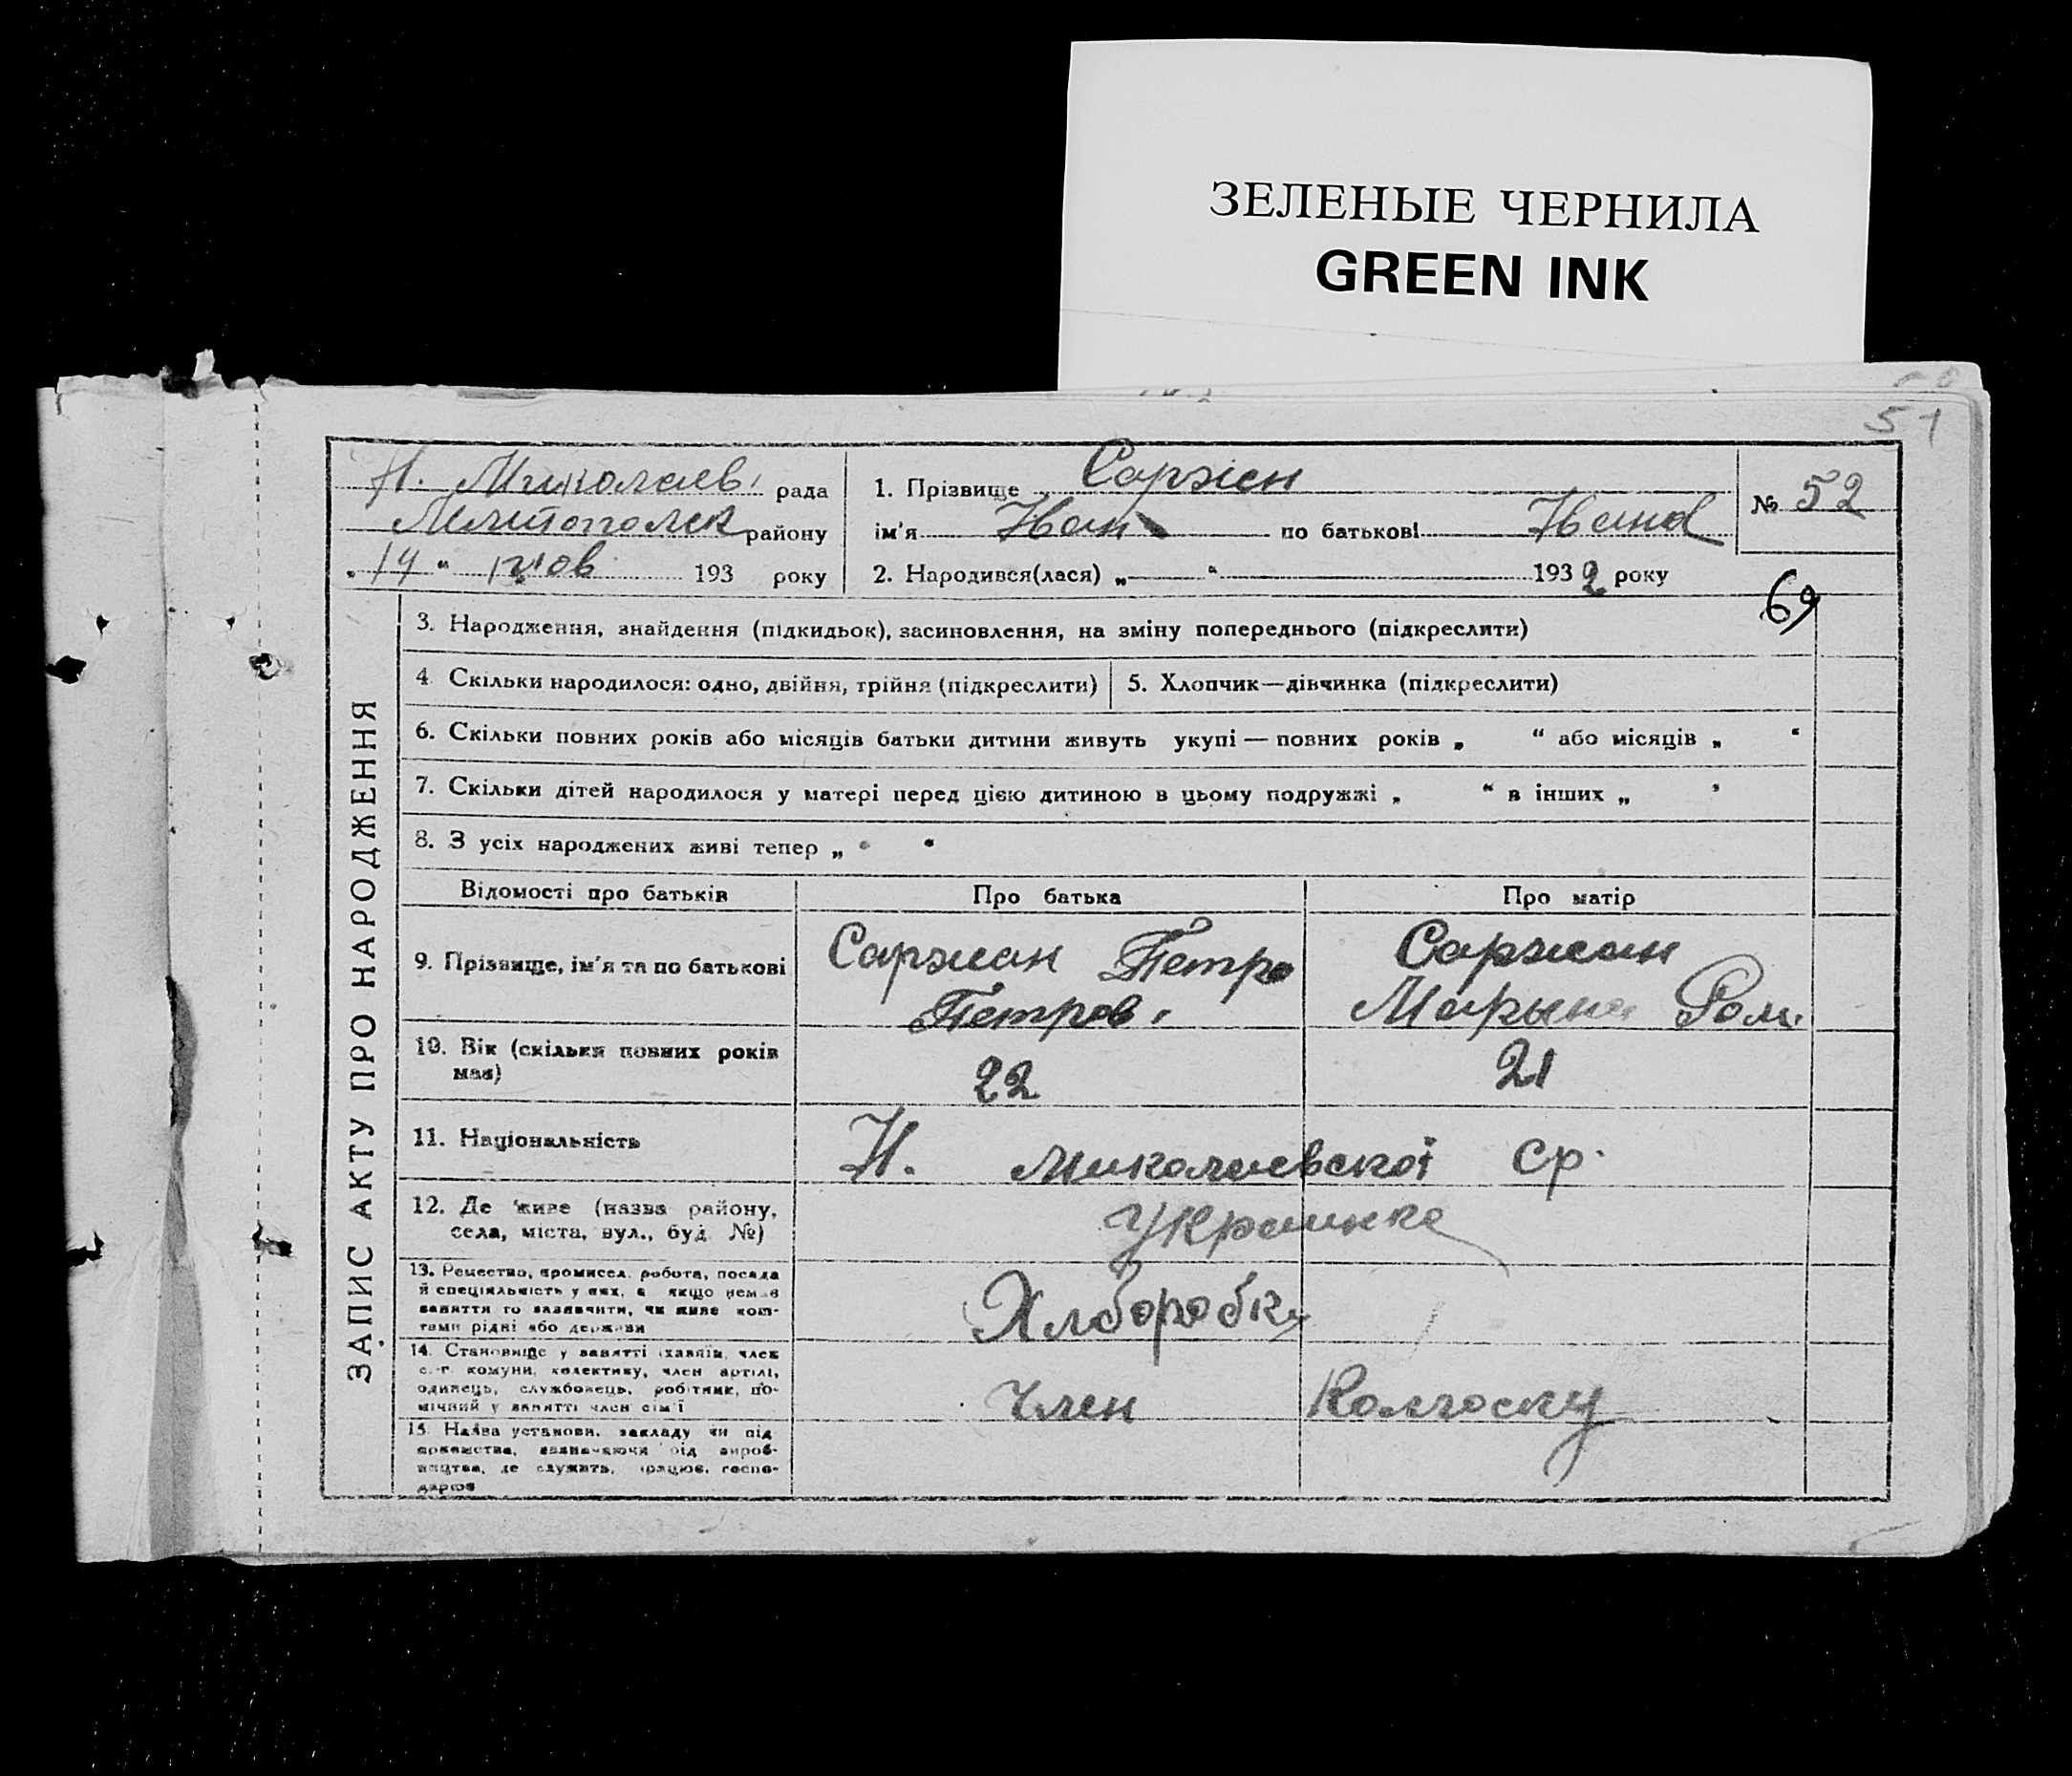 ЗЕЛЕНЫЕ ЧЕРНИЛА
GREEN INK
51
Н. Миколаев, рада
Мелитопольск району
„14“ 193 року
1. Прізвище Саржан
ім'я Иван по батькові
2. Народився(лася) „ “ 1932 року
№ 52
69
ЗАПИС АКТУ ПРО НАРОДЖЕННЯ
3. Народження, знайдення (підкидьок), засиновлення, на зміну попереднього (підкреслити)
4. Скільки народилося: одно, двійня, трійня (підкреслити)
5. Хлопчик—дівчинка (підкреслити)
6. Скільки повних років або місяців батьки дитини живуть укупі — повних років „ “ або місяців „ “
7. Скільки дітей народилося у матері перед цією дитиною в цьому подружжі „ “ в інших „ “
8. З усіх народжених живі тепер „ “
Відомості про батьків
Про батька
Про матір
9. Прізвище, ім'я та по батькові
Саржан Петро
Петров.
Саржан
Марына Ром.
10. Вік (скільки повних років
має)
22
21
11. Національність
Н. Миколаевскої ср.
12. Де живе (назва району,
села, міста, вул., буд. №)
Украинка
13. Ремество, промисел, робота, посада
й спеціяльність у них, а якщо немає
заняття то зазначити, чи живе кош-
тами рідні або держави
Хлборобка
14. Становище у занятті (хазяїн, член
с.-г. комуни, колективу, член артілі,
одинець, службовець, робітник, по-
мічний у занятті член сім'ї
Член Колгоспу
15. Назва установи, закладу чи під
приємства, зазначаючи рід вироб-
ництва, де служить, працює, госпо-
дарює